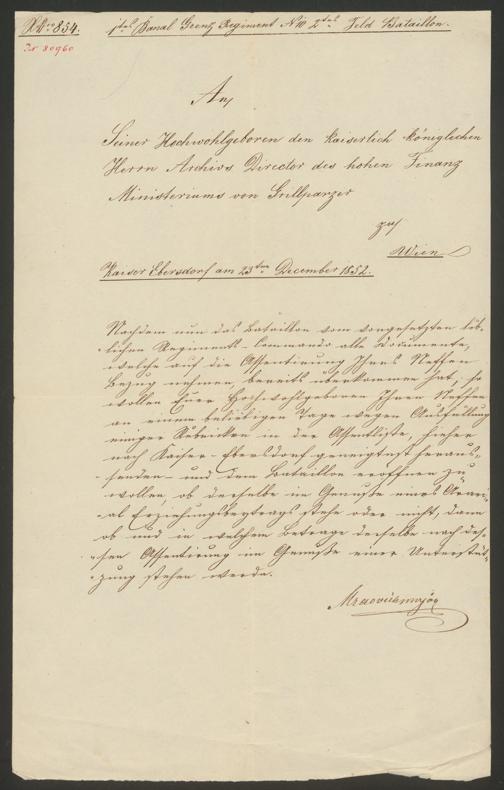 R. Nro 834. 1tes Banal Grenz Regiment No 10 2tes Feld Bataillon.
Jr 80960
An
Seiner Hochwohlgeboren den kaiserlich königlichen
Herrn Archivs Director des hohen Finanz
Ministeriums von Grillparzer
zu
Wien
Kaiser Ebersdorf am 23ten December 1852.
Nachdem nun das Bataillon vom vorgesetzten löb-
lichen Regiments-Commando alle Documente,
welche auf die Assentirung Ihres Neffen
Bezug nehmen, bereits überkommen hat, so
wollen Euer Hochwohlgeboren Ihren Neffen
an einem beliebigen Tage wegen Ausfüllung
einiger Rubriken in der Assentliste, hieher
nach Kaiser-Ebersdorf geneigtest heraus-
senden und dem Bataillon eröffnen zu
wollen, ob derselbe im Genuße eines Aerari-
al Erziehungsbeytrags stehe oder nicht, dann
ob und in welchem Betrage derselbe nach des-
sen Assentirung im Genuße einer Unterstüt-
zung stehen werde.